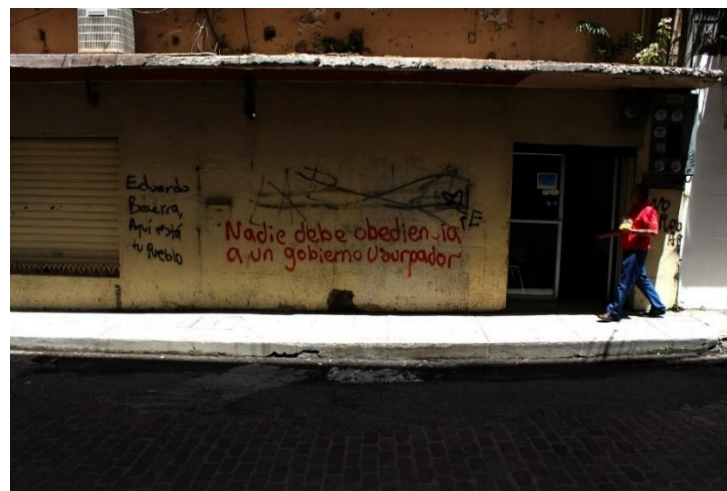 Eduardo
Becerra,
Aquí está
tu Pueblo
Nadie debe obediencia
a un gobierno Usurpador
NO